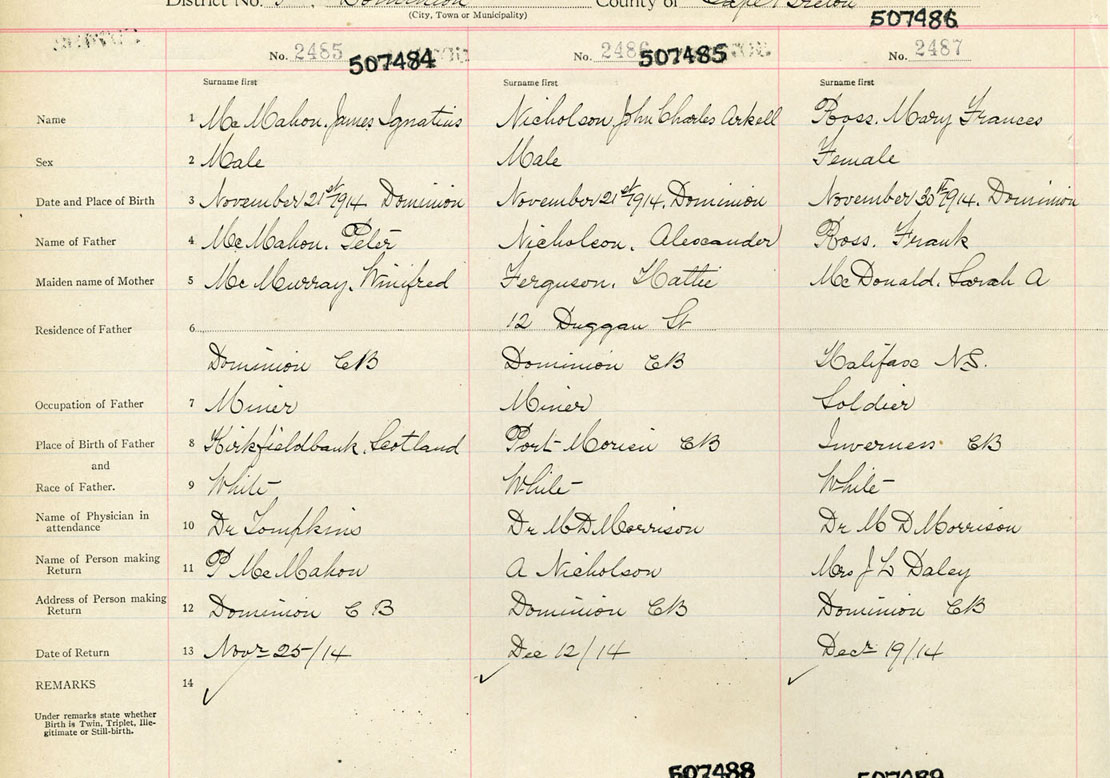 District No. Dominion County of Cape Breton
(City, Town or Municipality)
507486
No. 2485 507484 No. 2486 507485 No. 2487
Surname first Surname first Surname first
Name 1 McMahon, James Ignatius Nicholson, John Charles Arkell Ross. Mary Frances
Sex 2 Male Male Female
Date and Place of Birth 3 November 21st 1914 Dominion November 21st 1914. Dominion November 30th 1914. Dominion
Name of Father 4 McMahon. Peter Nicholson. Alexander Ross. Frank
Maiden name of Mother 5 McMurray, Winifred Ferguson. Hattie McDonald. Sarah A
Residence of Father 6 12 Duggan St
Dominion CB Dominion CB Halifax NS.
Occupation of Father 7 Miner Miner Soldier
Place of Birth of Father 8 Kirkfieldbank, Scotland Port Morien CB Inverness CB
and
Race of Father. 9 White White White
Name of Physician in
attendance 10 Dr Tompkins Dr M D Morrison Dr M D Morrison
Name of Person making
Return 11 P McMahon A Nicholson Mrs J L Daley
Address of Person making
Return 12 Dominion C B Dominion CB Dominion CB
Date of Return 13 Novr 25/14 Dec 12/14 Decr 19/14
REMARKS 14
Under remarks state whether
Birth is Twin, Triplet, Ille-
gitimate or Still-birth.
507488 507489